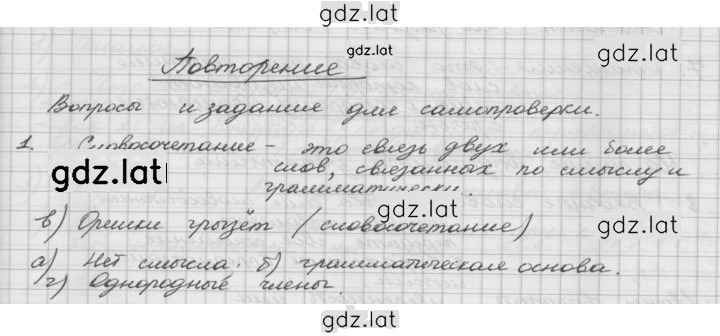 gdz.lat
gdz.lat
Повторение
gdz.lat
Вопросы и задание для самопроверки.
1. Словосочетание - это связь двух или более
gdz.lat
слов, связанных по смыслу и
грамматически.
gdz.lat
в) Орешки грызёт (словосочетание)
gdz.lat
а) Нет смысла. б) грамматическая основа.
г) Однородные члены.
gdz.lat